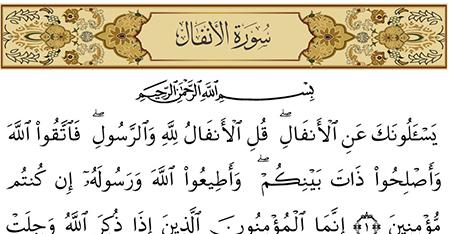 سُورَةُ الأَنفَال
بِسْمِ ٱللَّهِ ٱلرَّحْمَٰنِ ٱلرَّحِيمِ
يَسْـَٔلُونَكَ عَنِ ٱلْأَنفَالِ ۖ قُلِ ٱلْأَنفَالُ لِلَّهِ وَٱلرَّسُولِ ۖ فَٱتَّقُوا۟ ٱللَّهَ
وَأَصْلِحُوا۟ ذَاتَ بَيْنِكُمْ ۖ وَأَطِيعُوا۟ ٱللَّهَ وَرَسُولَهُۥٓ إِن كُنتُم
مُّؤْمِنِينَ ﴿١﴾ إِنَّمَا ٱلْمُؤْمِنُونَ ٱلَّذِينَ إِذَا ذُكِرَ ٱللَّهُ وَجِلَتْ